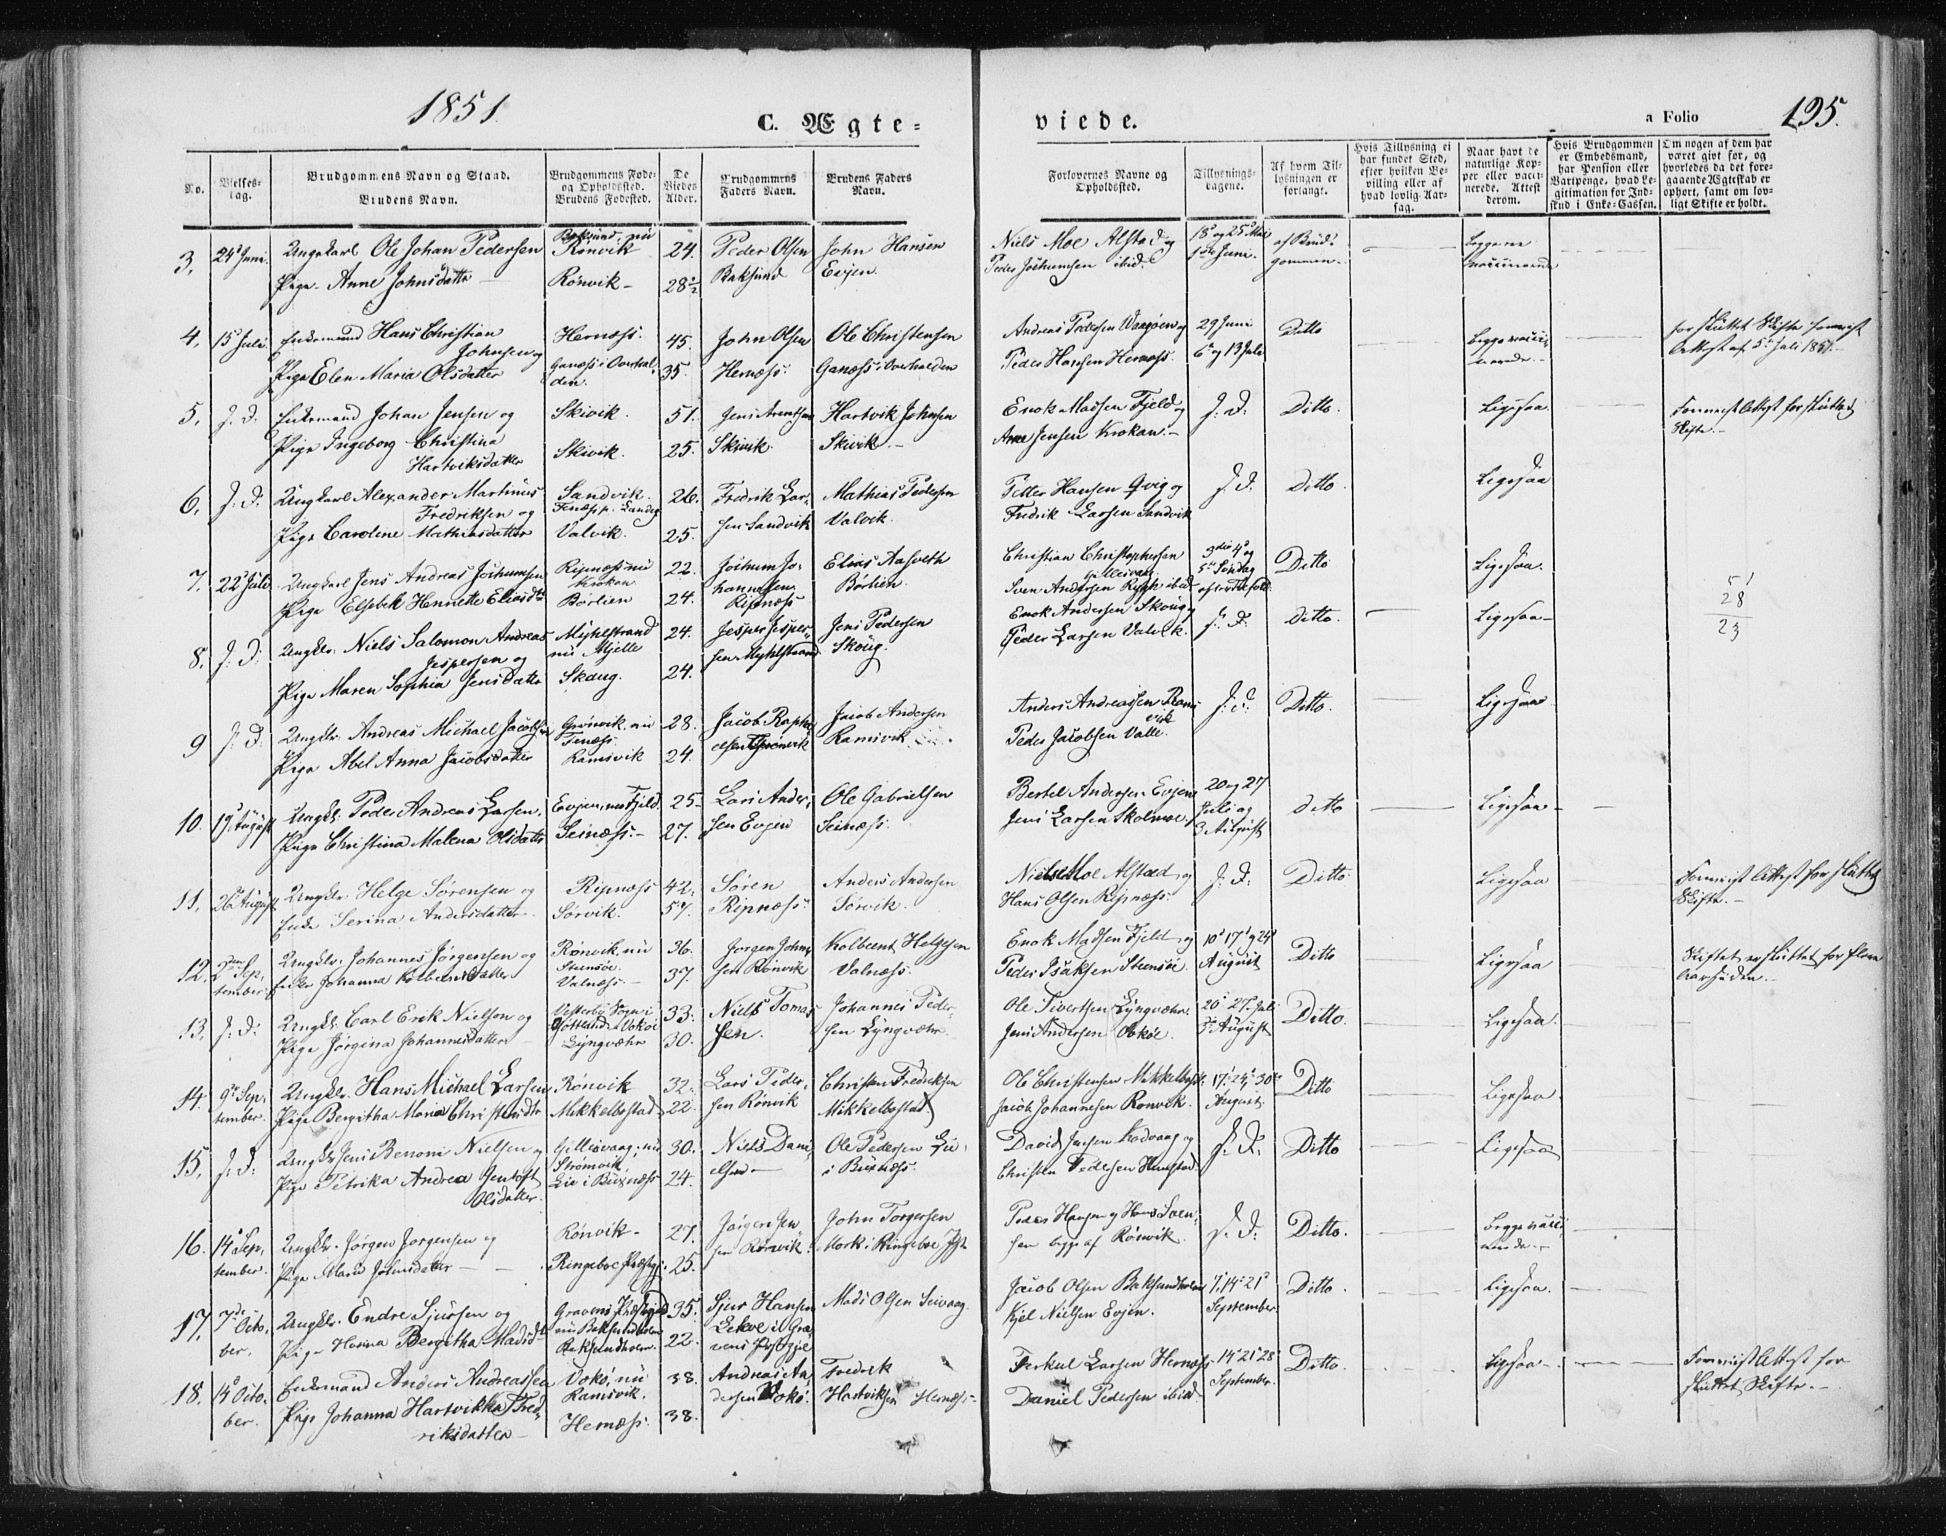 1851
C. Ægte-
viede.
a Folio
195.
No.
Vielses-
dag.
Brudgommens Navn og Stand.
Brudens Navn.
Brudgommens Føde-
og Opholdssted.
Brudens Fødested.
De
Viedes
Alder.
Brudgommens
Faders Navn.
Brudens Faders
Navn.
Forlovernes Navne og
Opholdssted.
Tillysnings-
dagene.
Af hvem Til-
lysningen er
forlangt.
Hvis Tillysning ei
har fundet Sted,
efter hvilken Be-
villing eller af
hvad lovlig Aar-
sag.
Naar havt de
naturlige Kop-
per eller vacci-
nerede. Attest
derom.
Hvis Brudgommen
er Embedsmand,
har Pension eller
Vartpenge, hvad Le-
gitimation for Ind-
skud i Enke-Cassen.
Om nogen af dem har
været gift før, og
hvorledes da det fore-
gaaende Ægteskab er
ophørt, samt om lov-
ligt Skifte er holdt.
3, 24de Juni. Ungekarl Ole Johan Pedersen
Pige Anne Johnsdatter
Baksund nu
Rönvik
Rönvik
24.
28½
Peder Olsen
Baksund
John Hansen
Evjen
Niels Moe Alstad og
Peder Jochumsen ibid.
18 og 25 Mai
1ste Juni.
af Brud-
gommen.
Begge ere
vaccinerede
4, 15 Juli Enkemand Hans Christian
Johnsen og
Pige Elen Maria Olsdatter
Hernæss.
Ganæss i Overhal-
den.
45.
35.
John Olsen
Hernæss.
Ole Christensen
Ganæss i Overhalden
Andreas Pedersen og
Peder Hansen Hernæss.
29 Juni
6 og 13 Juli
Ditto
Begge vacci-
nerede
for sluttet Skifte forevist
Attest af 5 Juli 1851.
5, J. D. Enkemand Johan Jensen og
Pige Ingeborg Christina
Hartviksdatter
Skivik.
Skivik.
51.
25.
Jens Arentsen
Skivik.
Hartvik Johnsen
Skivik.
Enok Madsen Fjeld og
Jensen Krokan.
J. D.
Ditto.
Ligesaa.
Forevist Attest for sluttet
Skifte.
6, J. D. Ungkarl Alexander Martinus
Fredriksen og
Pige Caroline Mathiasdatter
Sandvik.
Valvik.
26.
25.
Fredrik Lar-
sen Sandvik
Mathias Pedersen
Valvik.
Petter Hansen Qvig og
Fredrik Larsen Sandvik
J. D.
Ditto.
Ligesaa
7, 22 Juli. Ungkarl Jens Andreas Jochumsen
Pige Elsebek Henriette Eliasdtr
Ripnæss nu
Krokan
Börlien
22.
24.
Jochum Jo-
hannesen
Ripnæss
Elias Aasveth
Börlien.
Christian Christophersen
Gillesvaag.
Sven Andersen ibid
3die 4de og
5te Söndag
Ditto
Ligesaa.
51
28
23
8, J. D. Ungk. Niels Salomon Andreas
Jespersen og
Pige Maren Sophia Jensdatter
Myhlstrand
nu Mjelle
Skaug.
24.
24.
Jesper Jesper-
sen Myhlstrand
Jens Pedersen
Skoug.
Enok Andersen Skoug og
Peder Larsen Valvik.
J. D.
Ditto
Ligesaa
9 J. D. Ungk. Andreas Michael Jacobsen
Pige Abel Anna Jacobsdatter
Grönvik nu
Tenæss
Ramsvik
28.
24.
Jacob Raph-
elsen Grönvik
Jacob Andersen
Ramsvik
Anders Andreassen Rams-
vik
Peder Jacobsen Valle.
J. D.
Ditto.
Ligesaa
10. 19 August Ungk. Peder Andreas Larsen.
Pige Christina Malena Olsdatter
Evjen, nu Fjeld
Seinæss.
25.
27.
Lars Ander-
sen Evjen
Ole Gabrielsen
Seinæss.
Bertel Andersen Evjen
Jens Larsen Skolmoe
20 og 27
Juli og
3 August
Ditto
Ligesaa
11, 26 August Ungk. Helge Sörensen og
Enke Serina Andersdatter
Ripnæss
Sörvik.
42.
57.
Sören
Ripnæss.
Anders Andersen
Sörvik.
Niels Moe Alstad og
Hans Olsen Ripnæss.
J. D.
Ditto.
Ligesaa
Forevist Attest for sluttet
Skifte.
12. 2den Sep-
tember Ungk. Johannes Jörgensen og
Enke Johanna Kolbentsdatter
Rönvik, nu
Steensöe
Valnæss.
36.
37.
Jörgen John-
sen Rönvik
Kolbent Helgesen
Valnæss.
Enok Madsen Fjeld og
Peder Isaksen Steensöe
10 17 og 24
August
Ditto
Ligesaa
Skiftet er sluttet for flere
Aar siden.
13, J. D. Ungk. Carl Erik Nielsen og
Pige Jörgina Johannesdatter
Vesterby Sogn i
Gottland, Voköe
Lyngvæhr
33.
30.
Niels Tomas-
sen.
Johannes Peder-
sen Lyngvæhr
Ole Sivertsen Lyngvæhr
Jens Andersen Vokøe.
20 27 Juli
3 August
Ditto.
Ligesaa.
14. 9de Sep-
tember. Ungk. Hans Michael Larsen
Pige Bergitha Maria Christensdtr
Rönvik
Mikkelbostad
32.
22.
Lars Peder-
sen Rönvik
Christen Fredriksen
Mikkelbostad.
Ole Christensen Mikkelbost.
Jacob Johannesen Rönvik.
17. 24. 30
August.
Ditto
Ligesaa.
15, J. D. Ungk. Jens Benoni Nielsen og
Pige Petrika Andrea Gentoft
Olsdatter.
Gillesvaag, nu
Strömsvik.
Lie i Buxnæss
30.
24.
Niels Dani-
elsen
Ole Pedersen Lie
i Buxnæss.
David Jensen Kodvaag og
Christen Pedersen
J. D.
Ditto
Ligesaa
16. 14 Sep-
tember. Ungk. Jörgen Jorgensen og
Pige Mari Johnsdatter
Rönvik
Ringeboe Præstg.
27.
25.
Jörgen Jen-
sen Rönvik.
John Torgersen
Mork i Ringeboe Pgt
Peder Hansen og Hans Soren-
sen begge af Rönvik.
J. D.
Ditto.
Begge vacci-
nerede.
17, 7de Octo-
ber. Ungk. Endre Sjursen og
Pige Hanna Bergitha Madsdtr
Gravens Præstegjeld
nu Baksundholm
Baksundholm.
35.
22.
Sjur Hansen
Lekve i Gra-
vens Præstgjel
Mads Olsen Seivaag
Jacob Olsen Baksundholm
Kjel Nielsen Evjen.
7. 14 21
September.
Ditto
Ligesaa.
18. 14 Octo-
ber. Enkemand Anders Andreassen
Pige Johanna Hartvikka Fred-
riksdatter
Vokö, nu
Ramsvik.
Hernæss.
38.
38.
Andreas An-
dersen Vokö.
Fredrik
Hartviksen Hernæss
Ferkul Larsen Hernæss
Daniel Pedersen ibid.
14 21 28
September.
Ditto.
Ligesaa.
Forevist Attest for
sluttet Skifte.